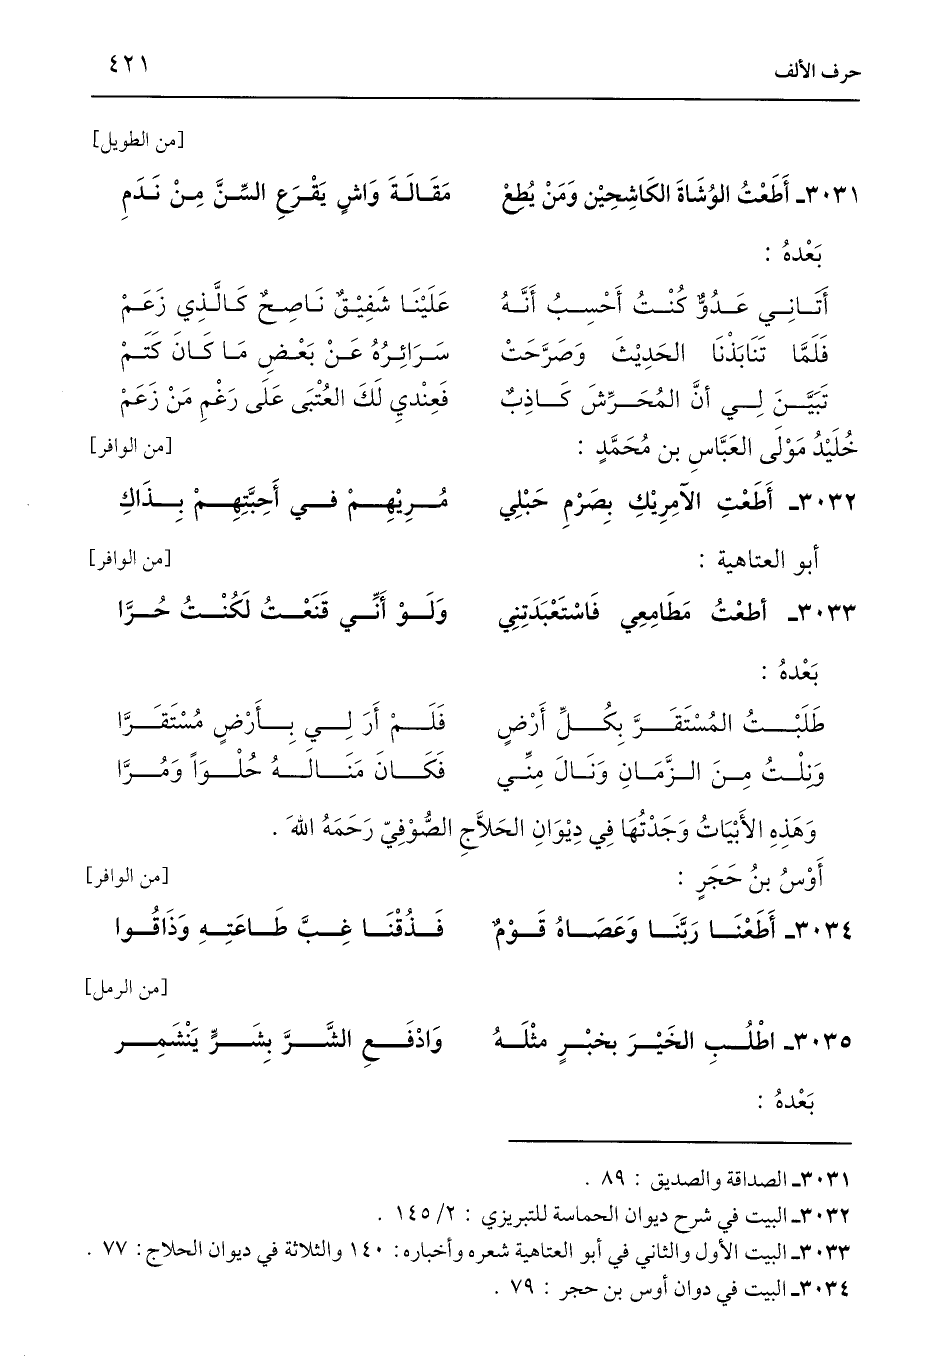 حرف الألف ٤٢١
[من الطويل]
٣٠٣١ـ أَطَعْتُ الوُشَاةَ الكَاشِحِيْن وَمَنْ يُطِعْ مَقَالَةَ وَاشٍ يَقْرَعِ السِّنَّ مِنْ نَدَمِ
بَعْدهُ :
أَتَانِي عَدُوٌّ كُنْتُ أَحْسِبُ أَنَّهُ عَلَيْنَا شَفِيْقٌ نَاصِحٌ كَالَّذِي زَعَمْ
فَلَمَّا تَنَابَذْنَا الحَدِيْثَ وَصَرَّحَتْ سَرَائِرُهُ عَنْ بَعْضِ مَا كَانَ كَتَمْ
تَبَيَّنَ لِي أنَّ المُحَرِّشَ كَاذِبٌ فَعِنْدِي لَكَ العُتْبَى عَلَى رَغْمِ مَنْ زَعَمْ
خُلَيْدُ مَوْلَى العَبَّاسِ بن مُحَمَّدٍ : [من الوافر]
٣٠٣٢ـ أَطَعْتِ الآمِرِيْكِ بِصَرْمِ حَبْلِي مُرِيْهِمْ فِي أَحِبَّتِهِمْ بِذَاكِ
أبو العتاهية : [من الوافر]
٣٠٣٣ـ أطعْتُ مَطَامِعِي فَاسْتَعْبَدَتِنِي وَلَوْ أَنِّي قَنَعْتُ لَكُنْتُ حُرَّا
بَعْدهُ :
طَلَبْتُ المُسْتَقَرَّ بِكُلِّ أَرْضٍ فَلَمْ أَرَ لِي بِأَرْضٍ مُسْتَقَرَّا
وَنِلْتُ مِنَ الزَّمَانِ وَنَالَ مِنِّي فَكَانَ مَنَالَهُ حُلْوَاً وَمُرَّا
وَهَذِهِ الأَبْيَاتُ وَجَدْتُهَا فِي دِيْوَانِ الحَلاَّجِ الصُّوْفِيّ رَحَمَهُ اللهَ .
أَوْسُ بنُ حَجَرٍ : [من الوافر]
٣٠٣٤ـ أَطَعْنَا رَبَّنَا وَعَصَاهُ قَوْمٌ فَذُقْنَا غِبَّ طَاعَتِهِ وَذَاقُوا
[من الرمل]
٣٠٣٥ـ اطْلُبِ الخَيْرَ بخبْرٍ مثْلَهُ وَادْفَعِ الشَّرَّ بِشَرٍّ يَنْشَمِر
بَعْدهُ :
٣٠٣١ـ الصداقة والصديق : ٨٩ .
٣٠٣٢ـ البيت في شرح ديوان الحماسة للتبريزي : ٢/ ١٤٥ .
٣٠٣٣ـ البيت الأول والثاني في أبو العتاهية شعره وأخباره: ١٤٠ والثلاثة في ديوان الحلاج: ٧٧ .
٣٠٣٤ـ البيت في دوان أوس بن حجر : ٧٩ .